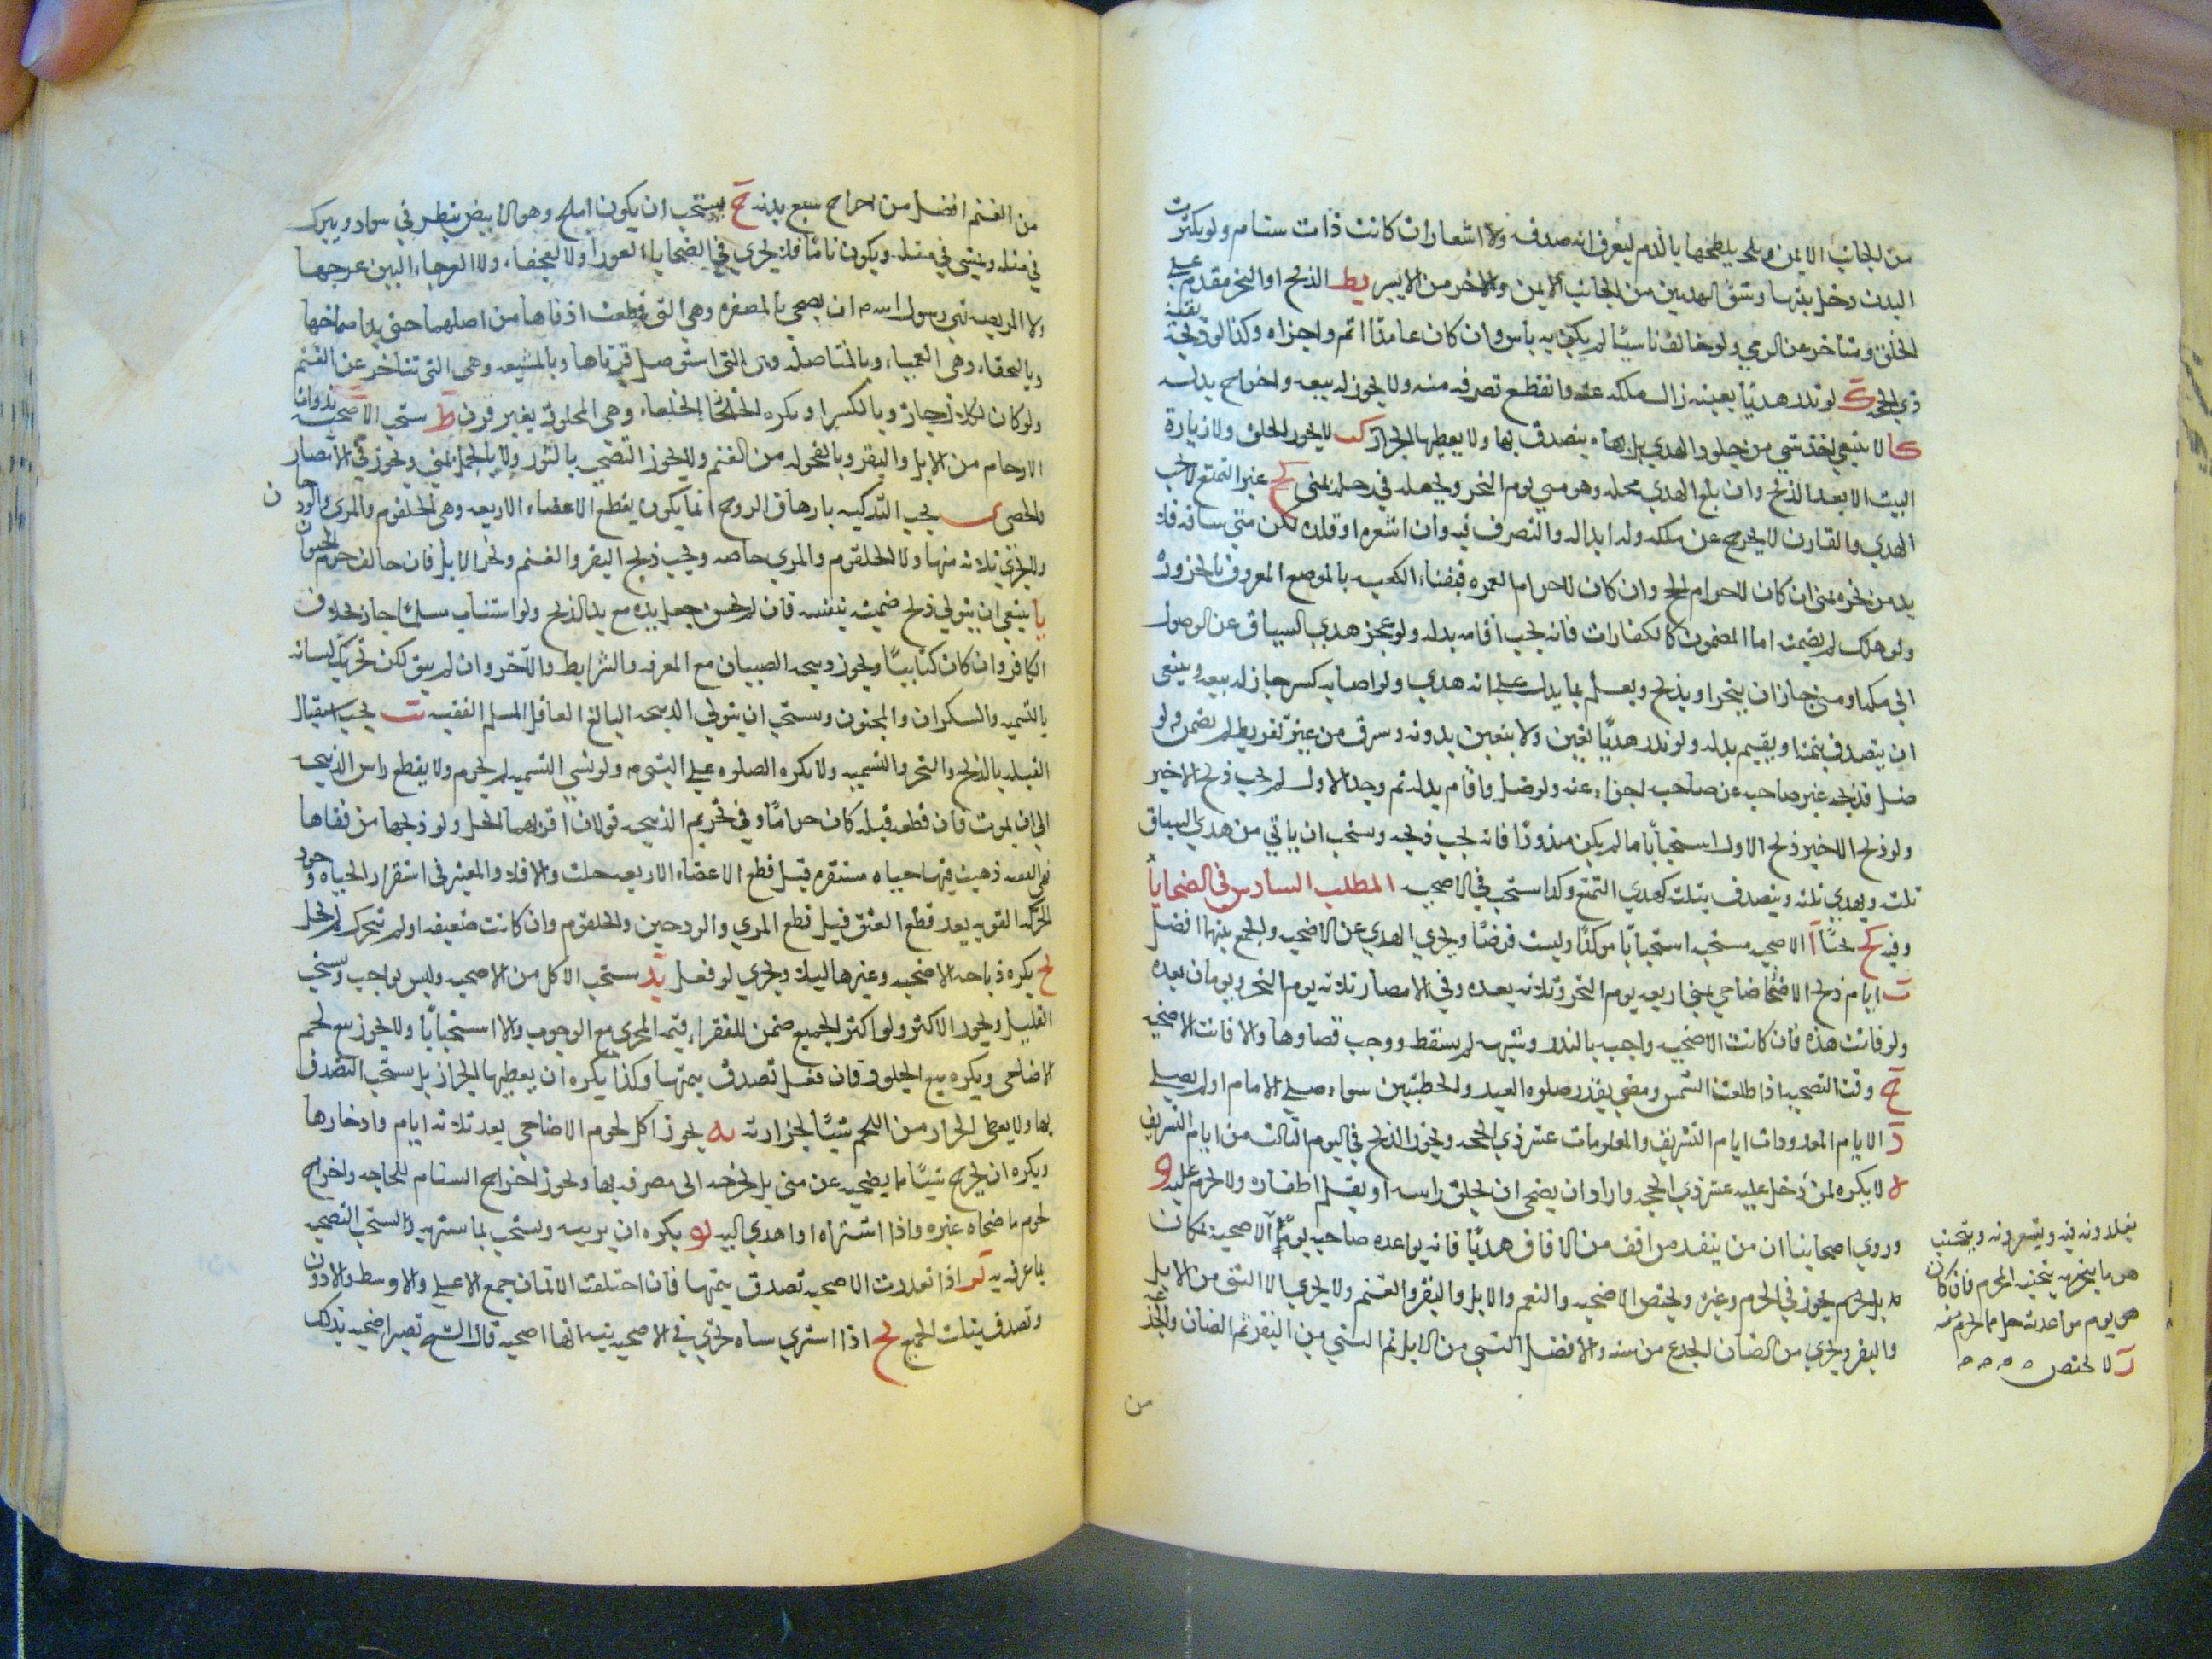 من الجانب الايمن ويلطخها بالدم ليعرف انه صدقه والاشعار ان كانت ذات سنام ولو تكثرت
البدن دخل بينها وشق الهديين من الجانب الايمن والاخر من الايسر يط الذبح او النحر مقدم على
الحلق ومتاخر عن الرمي ولو خالف ناسيا لم يكن به باس وان كان عامدا اثم واجزاه وكذا لو ذبحه بقية
ذي الحجة ك لو نذر هديا بعينه زال ملكه عنه وانقطع تصرفه منه ولا يجوز له بيعه واخراج بدله
كا لا ينبغي اخذ شي من جلود الهدي بل يتصدق بها ولا يعطيها الجزار كب لا يجوز الحلق ولا زيارة
البيت الا بعد الذبح وان بلغ الهدي محله وهو منى يوم النحر ويجعله في رحله بمنى كج غير المتمتع لا يجب
الهدي والقارن لا يخرج عن ملكه وله ابداله والتصرف فيه وان اشعره او قلده لكن متى ساقه فلا
بد من نحره بمنى ان كان لاحرام الحج وان كان لاحرام العمره فبفناء الكعبه بالموضع المعروف بالحزوره
ولو هلك لم يضمنه اما المضمون كالكفارات فانه يجب اقامه بدله ولو عجز هدي السياق عن الوصول
الى مكه او منى جاز ان ينحر او يذبح ويعلم بما يدل على انه هدي ولو اصابه كسر جاز له بيعه وينبغي
ان يتصدق بثمنه او يقيم بدله ولو نذر هديا تعين ولا يتعين بدونه وسرق من غير تفريط لم يضمن ولو
ضل فذبحه غير صاحبه عن صاحبه اجزاء عنه ولو ضل واقام بدله ثم وجد الاول لم يجب ذبح الاخير
ولو ذبح الاخير ذبح الاول استحبابا ما لم يكن منذورا فانه يجب ذبحه ويستحب ان ياتي من هدي السياق
ثلثه ويهدي ثلثه ويتصدق بثلثه كهدي التمتع وكذا يستحب في الاضحيه المطلب السادس في الضحايا
وفيه كح بحثا آ الاضحيه مستحبه استحبابا موكدا وليست فرضا ويجزي الهدي عن الاضحيه والجمع بينهما افضل
ب ايام ذبح الاضاحي بمنى اربعه يوم النحر وثلاثه بعده وفي الامصار ثلاثه يوم النحر ويومان بعده
ولو فاتت هذه فان كانت الاضحيه واجبه بالنذر وشبهه لم يسقط ووجب قضاوها والا فاتت الاضحيه
ج وقت التضحيه اذا طلعت الشمس ومضى بقدر صلوه العيد والخطبتين سواء صلى الامام او لم يصلي
د الايام المعدودات ايام التشريق والمعلومات عشر ذي الحجه ويجوز الذبح في اليوم الثالث من ايام التشريق
ه لا يكره لمن دخل عليه عشر ذي الحجه واراد ان يضحي ان يحلق راسه او يقلم اظفاره ولا يحرم عليه و
وروى اصحابنا ان من ينفذ من افق من الافاق هديا فانه يواعده صاحبه يوما الاضحية بمكان
بل الحرم يجوز في الحرم وغيره ويختص الاضحيه والنعم والابل والبقر والغنم ولا يجزي الا الثني من الابل
والبقر ويجزي من الضان الجذع من سنه والافضل الثني من الابل ثم الثني من البقر ثم الضان والجذع
يقلدونه فيه ويشعرونه ويجتنب
هو ما يجتنبه المحرم فان كان
هو يوم مواعدته حل مما احرم منه
ز لا يختص
من
من الغنم افضل من اخراج سبع بدنه ح يستحب ان يكون املح وهو الابيض ينظر في سواد ويبرك
في مثله ويمشي في مثله ويكون تاما فلا يجزي في الضحايا العورا ولا العجفاء ولا العرجاء البين عرجها
ولا المريضه نهى رسول الله م ان يضحى بالمصفره وهي التي قطعت اذناها من اصلهما حتى بدا صماخها
وبالبخقاء وهي العمياء وبالمتاصله وهي التي استوصل قرناها وبالمشيعه وهي التي تتاخر عن الغنم
ولو كان للكلال جاز وبالكسرا ويكره الجلحاء وهي المخلوقه بغير قرن ط يستحب الاضحيه بذوات
الارحام من الابل والبقر وبالفحوله من الغنم ولا يجوز التضحيه بالثور ولا بالجمل بمنى ويجوز في الامصار
بالخصي ى يجب التذكيه بازهاق الروح انما يكون بقطع الاعضاء الاربعه وهي الحلقوم والمري والودجان
ولا يجزي ثلاثه منها ولا الحلقوم والمري خاصه ويجب ذبح البقر والغنم ونحر الابل فان خالف حرم الحيوان
يا ينبغي ان يتولى ذبح اضحيته بنفسه فان لم يحسن جعل يده مع يد الذابح ولو استناب مسلما جاز بخلاف
الكافر وان كان كتابيا ويجوز ذبيحه الصبيان مع المعرفه والشرايط والاخرس وان لم ينطق لكن تحريك لسانه
بالتسميه والسكران والمجنون ويستحب ان يتولى الذبيحه البالغ العاقل المسلم الفقيه يب يجب استقبال
القبله بالذبح والنحر والتسميه ولا يكره الصلوه على النبي م ولو نسي التسميه لم يحرم ولا يقطع راس الذبيحه
الى ان يموت فان قطعه قبله كان حراما وفي تحريم الذبيحه قولان اقربهما الحل ولو ذبحها من قفاها
ذهبت فيها حياه مستقره قبل قطع الاعضاء الاربعه حلت والا فلا والمعتبر في استقرار الحياه وجود
الحركه القويه بعد قطع العنق قبل قطع المري والودجين والحلقوم وان كانت ضعيفه او لم تتحرك لم يحل
يج يكره ذباحه الاضحيه وغيرها ليلا ويجزي لو فعل يد يستحب الاكل من الاضحيه وليس بواجب ويستحب
القليل ويجوز الاكثر ولو اكثر الجميع ضمن للفقراء قيمه المجزي مع الوجوب والا استحبابا ولا يجوز بيع لحم
الاضاحي ويكره بيع الجلود فان فعل تصدق بثمنها وكذا يكره ان يعطيها الجزار بل يستحب التصدق
بها ولا يعطى الجزار من اللحم شيئا لجزارته يه يجوز اكل لحوم الاضاحي بعد ثلاثه ايام وادخارها
ويكره ان يخرج شيئا مما يضحيه عن منى بل يخرجه الى مصرفه بها ويجوز اخراج السنام للحاجه واخراج
لحوم ما ضحاه غيره واذا اشتراه او اهدي اليه يو يكره ان يربيه ويستحب بما يشتريه ويستحب التضحيه
بما عرف به يز اذا تعذرت الاضحيه تصدق بثمنها فان اختلفت الاثمان جمع الاعلى والاوسط والادون
وتصدق بثلث الجميع يح اذا اشترى شاه تجزي في الاضحيه بنيه انها اضحيه قال الشيخ تصير اضحيه بذلك